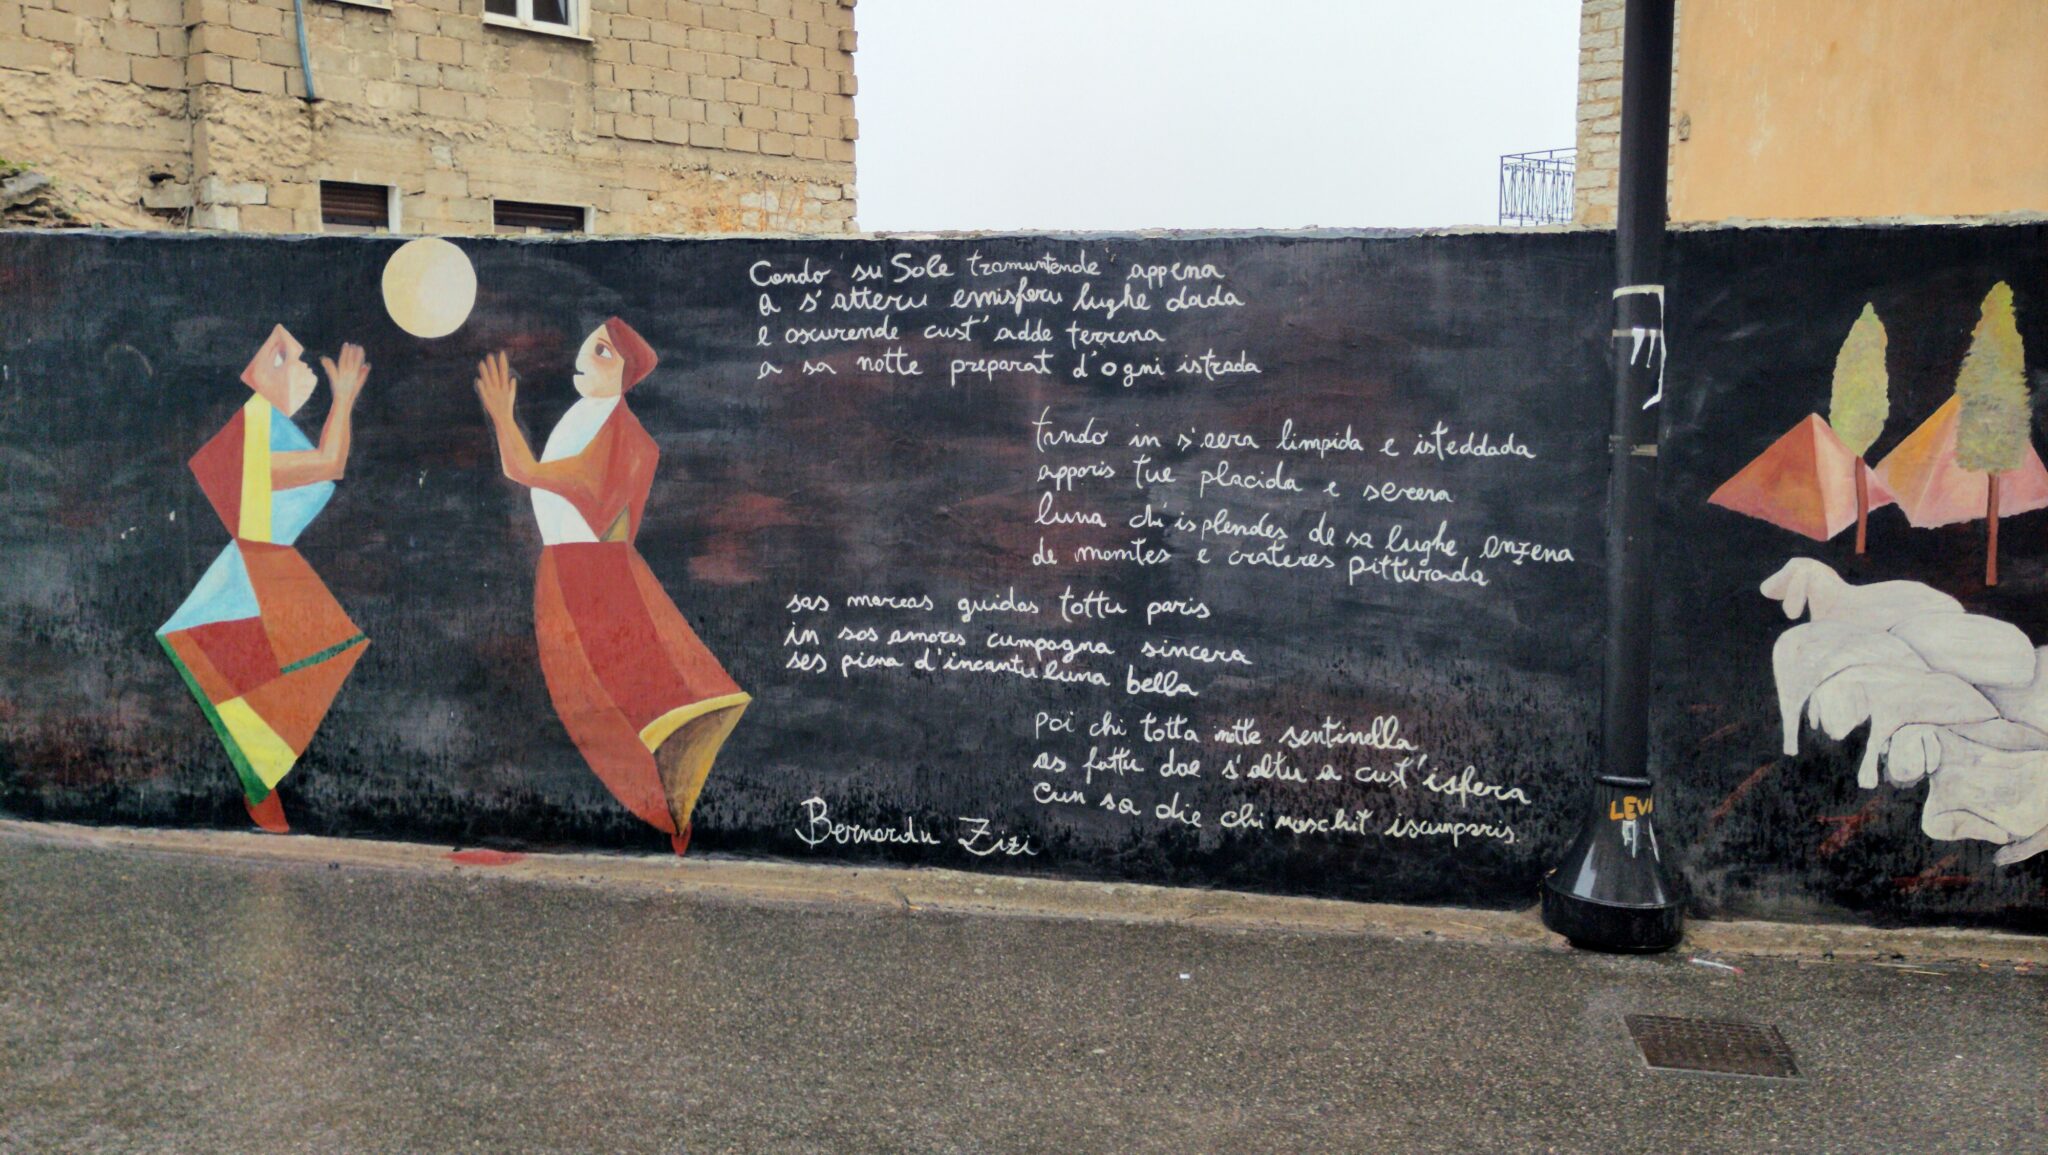 Cando su Sole tramuntende appena
a s'atteru emisferu lughe dada
e oscurende cust'adde terrena
a sa notte preparat d'ogni istrada
tando in s'aera limpida e isteddada
apparis tue placida e serena
luna chi isplendes de sa lughe anzena
de montes e crateres pitturada
sas mareas guidas tottu paris
in sos amores cumpagna sincera
ses piena d'incantu luna bella
poi chi totta notte sentinella
as fattu dae s'altu a cust'isfera
cun sa die chi naschit iscumparis.
Bernardu Zizi
LEVI